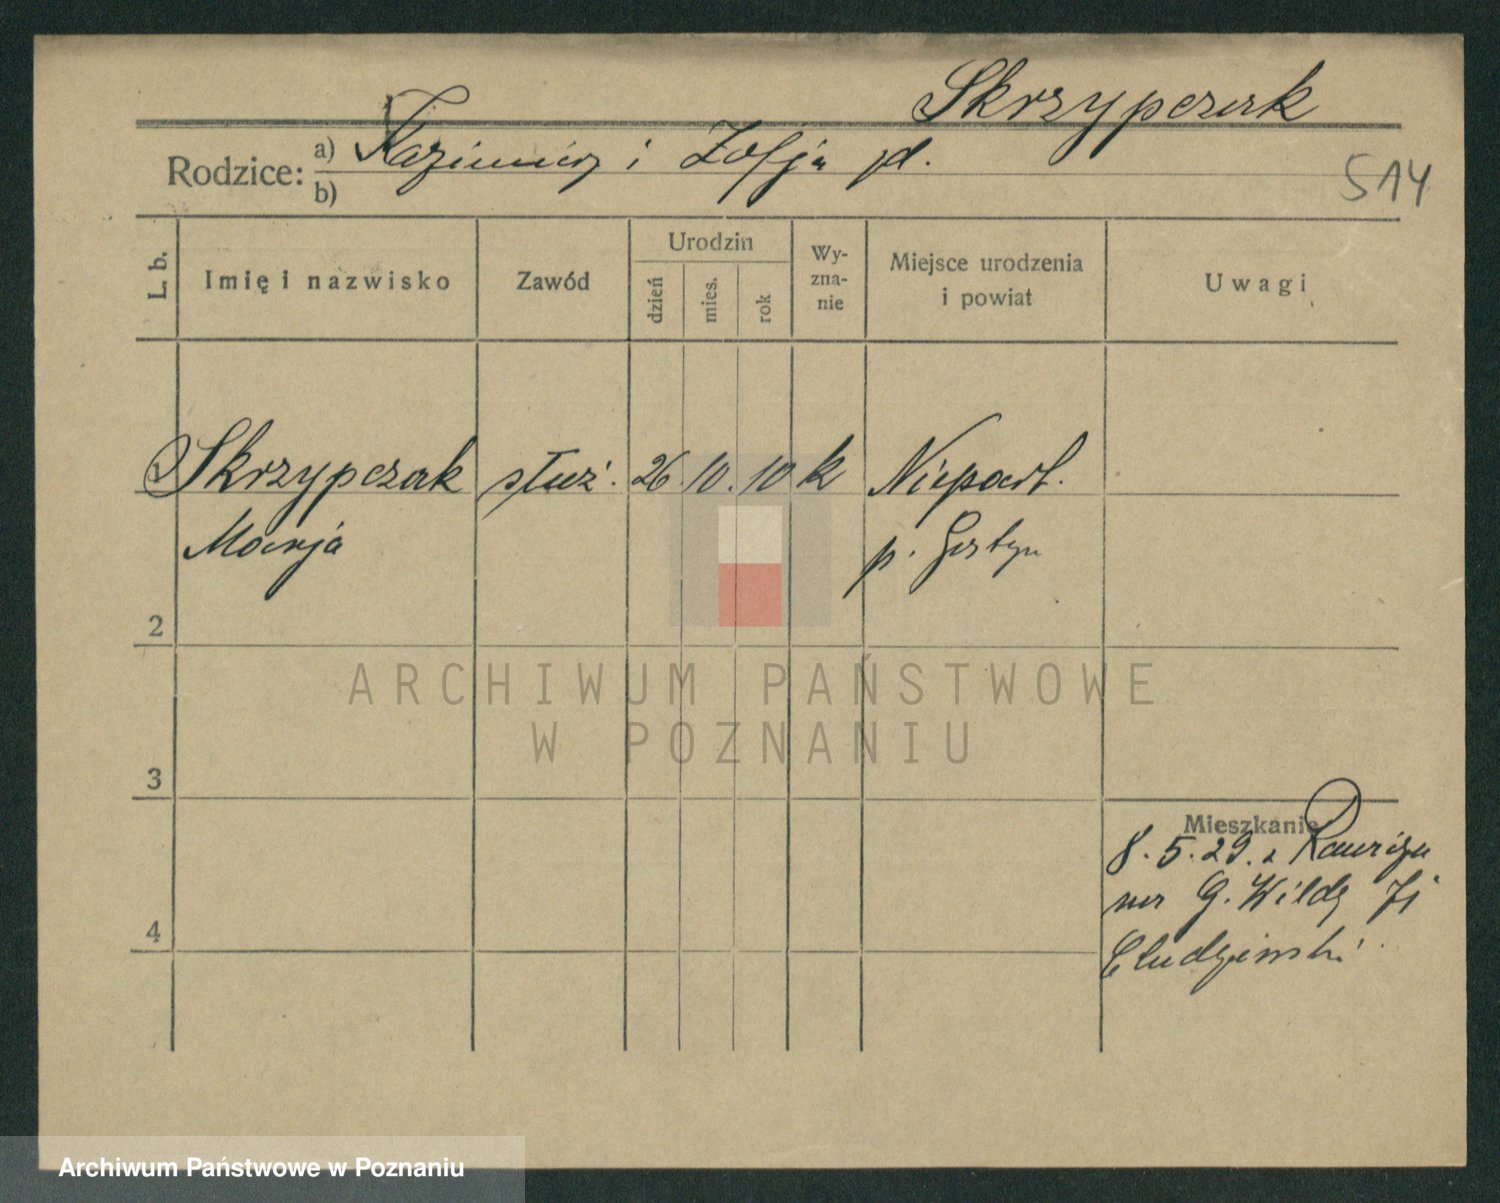 Skrzypczak
Rodzice: a) Kazimierz i Zofja pd.
b)
514
L. b.
Imię i nazwisko
Zawód
Urodzin
dzień
mies.
rok
Wy-
zna-
nie
Miejsce urodzenia
i powiat
Uwagi
Skrzypczak służ. 26. 10. 10 k Niepart.
Marja p. Gostyn
2
3
4
Mieszkanie
8.5.29. z
na G. Wildę 71
ARCHIWUM PAŃSTWOWE
W POZNANIU
Archiwum Państwowe w Poznaniu